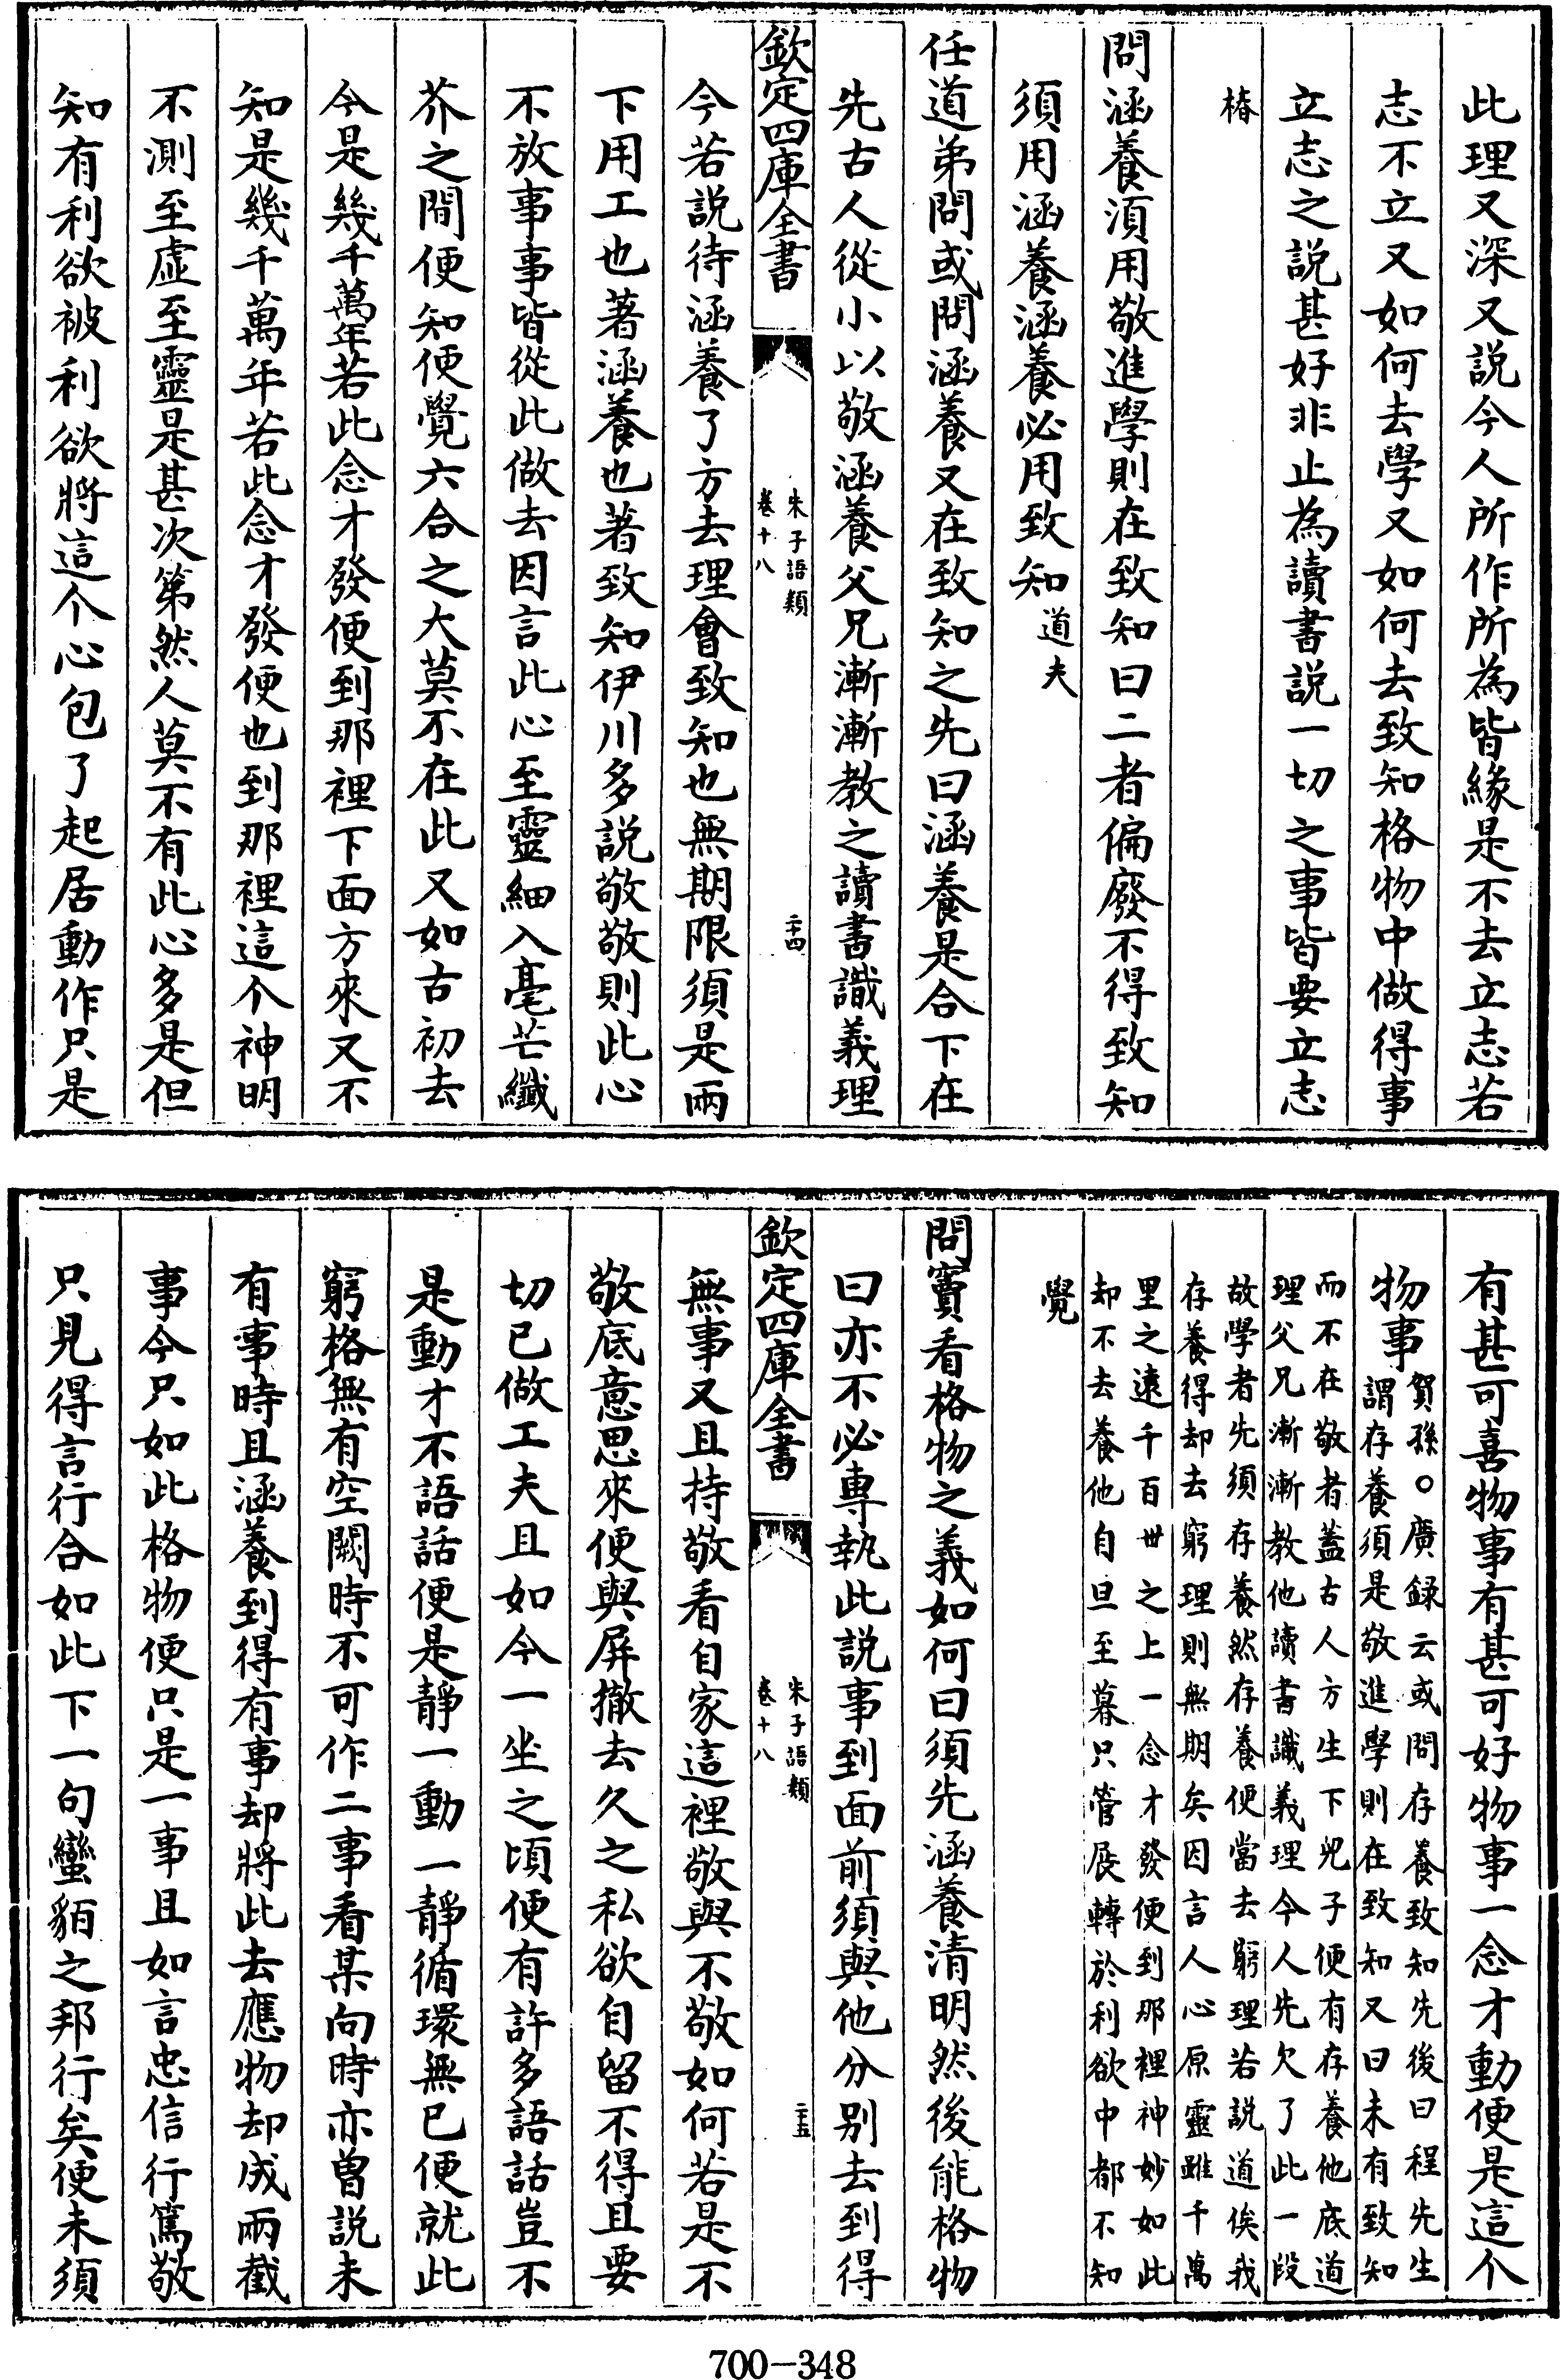 此理又深又説今人所作所為皆緣是不去立志若
志不立又如何去學又如何去致知格物中做得事
立志之説甚好非止為讀書説一切之事皆要立志
椿
問涵養須用敬進學則在致知曰二者偏廢不得致知
須用涵養涵養必用致知道夫
任道弟問或問涵養又在致知之先曰涵養是合下在
先古人從小以敬涵養父兄漸漸教之讀書識義理
欽定四庫全書
朱子語類
卷十八
二十四
今若説待涵養了方去理會致知也無期限須是兩
下用工也著涵養也著致知伊川多説敬敬則此心
不放事事皆從此做去因言此心至靈細入毫芒纖
芥之間便知便覺六合之大莫不在此又如古初去
今是幾千萬年若此念才發便到那裡下面方來又不
知是幾千萬年若此念才發便也到那裡這个神明
不測至虛至靈是甚次第然人莫不有此心多是但
知有利欲被利欲將這个心包了起居動作只是
有甚可喜物事有甚可好物事一念才動便是這个
物事賀孫○廣録云或問存養致知先後曰程先生
謂存養須是敬進學則在致知又曰未有致知
而不在敬者蓋古人方生下兒子便有存養他底道
理父兄漸漸教他讀書識義理今人先欠了此一段
故學者先須存養然存養便當去窮理若説道俟我
存養得却去窮理則無期矣因言人心原靈雖千萬
里之遠千百世之上一念才發便到那裡神妙如此
却不去養他自旦至暮只管展轉於利欲中都不知
覺
問竇看格物之義如何曰須先涵養清明然後能格物
曰亦不必專執此説事到面前須與他分别去到得
欽定四庫全書
朱子語類
卷十八
二十五
無事又且持敬看自家這裡敬與不敬如何若是不
敬底意思來便與屏撤去久之私欲自留不得且要
切已做工夫且如今一坐之頃便有許多語話豈不
是動才不語話便是靜一動一靜循環無已便就此
窮格無有空闕時不可作二事看某向時亦曾説未
有事時且涵養到得有事却將此去應物却成兩截
事今只如此格物便只是一事且如言忠信行篤敬
只見得言行合如此下一句蠻貊之邦行矣便未須
700-348